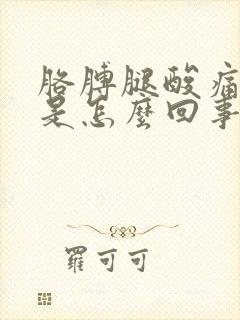 胳膊腿酸痛
是怎麼回事
羅可可